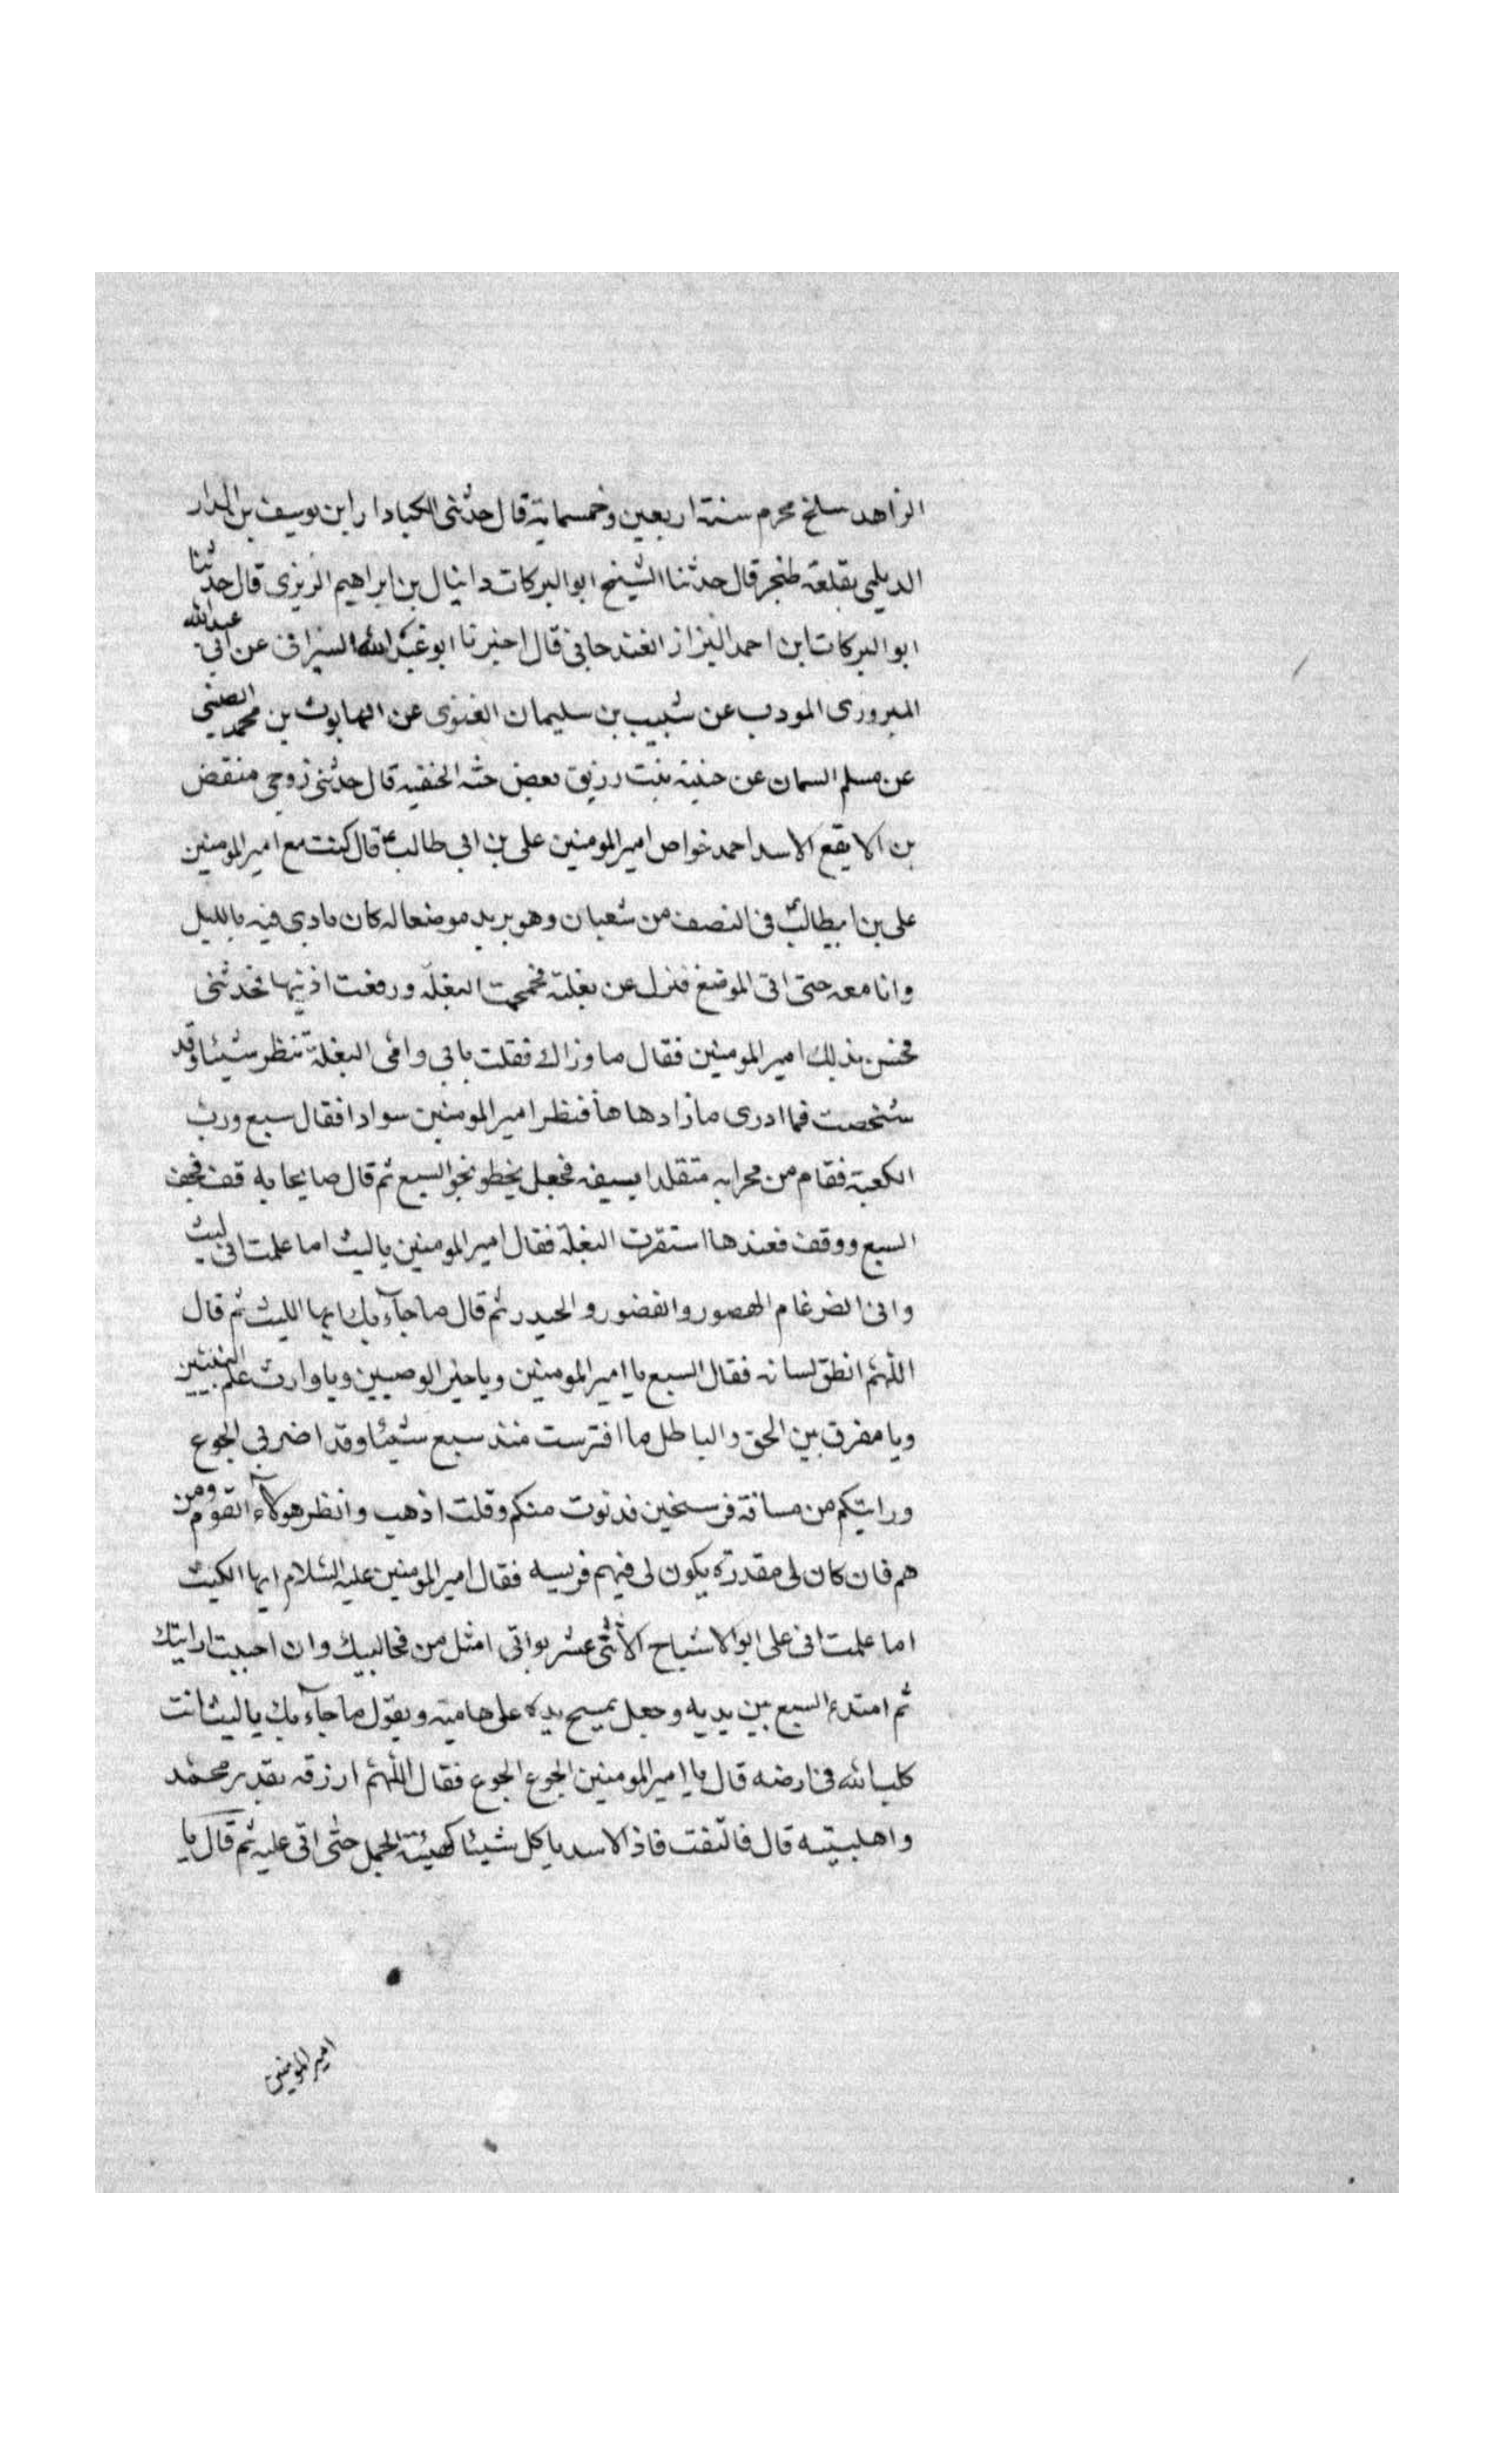 الزاهد سلخ محرم سنة اربعين وخمسماية قال حدثنى الكيادار ابن يوسف بن الدار
الديلمى بقلعة طنجر قال حدثنا الشيخ ابو البركات دانيال بن ابراهيم الزيزى قال حدثنا
ابو البركات ابن احمد البزاز الغندجانى قال اخبرنا ابو عبد الله السيرافى عن ابى عبد الله
المبرورى المودب عن شبيب بن سليمان الغنوى عن الهابوث بن محمد الصينى
عن مسلم السمان عن حنينه بنت رزيق بعض حشه الحنفيه قال حدثنى زوجى منقض
بن الايقع الاسد احمد خواص اميرالمومنين على بن ابى طالبؑ قال كنت مع اميرالمومنين
على بن ابيطالبؑ فى النصف من شعبان وهو يريد موضعا له كان مادى فيه بالليل
وانا معه حتى اتى الموضع فنزل عن بغلته فحمحمت البغلة ورفعت اذنيها فحذثنى
فحس بذلك اميرالمومنين فقال ما وزاك فقلت بابى وامى البغلة تنظر شيئا وقد
شخصت فما ادرى ماذا دهاها فنظر اميرالمومنين سوادا فقال سبع ورب
الكعبة فقام من محرابه متقلدا بسيفه فجعل يخطو نحو السبع ثم قال صايحا به قف فخف
السبع ووقف فعندها استقرت البغلة فقال اميرالمومنين ياليث اما علمت انى ليث
وانى الضرغام الهصور والقضور والحيدر ثم قال ما جآء بك ايها الليث ثم قال
اللهم انطق لسانه فقال السبع يا اميرالمومنين وياخير الوصيين وياوارث علم النبيين
ويا مفرق بين الحق والباطل ما افترست منذ سبع شيئا وقد اضر بى الجوع
ورايتكم من مسافة فرسخين فدنوت منكم وقلت اذهب وانظر هولآء القوم ومن
هم فان كان لى مقدرة يكون لى فيهم فريسه فقال اميرالمومنين عليه السلام ايها الليث
اما علمت انى على ابوالاشباح الاثنى عشر بواثى امثل من مخاليبك وان احببت ارايتك
ثم امتدء السبع بين يديه وجعل يمسح يده على هامته ويقول ما جآء بك ياليث انت
كلب الله فى ارضه قال يا اميرالمومنين الجوع الجوع فقال اللهم ارزقه بقدر محمد
واهلبيته قال فالتفت فاذ الاسد ياكل شيئا كهيئة الجمل حتى اتى عليه ثم قال يا
اميرالمومنين